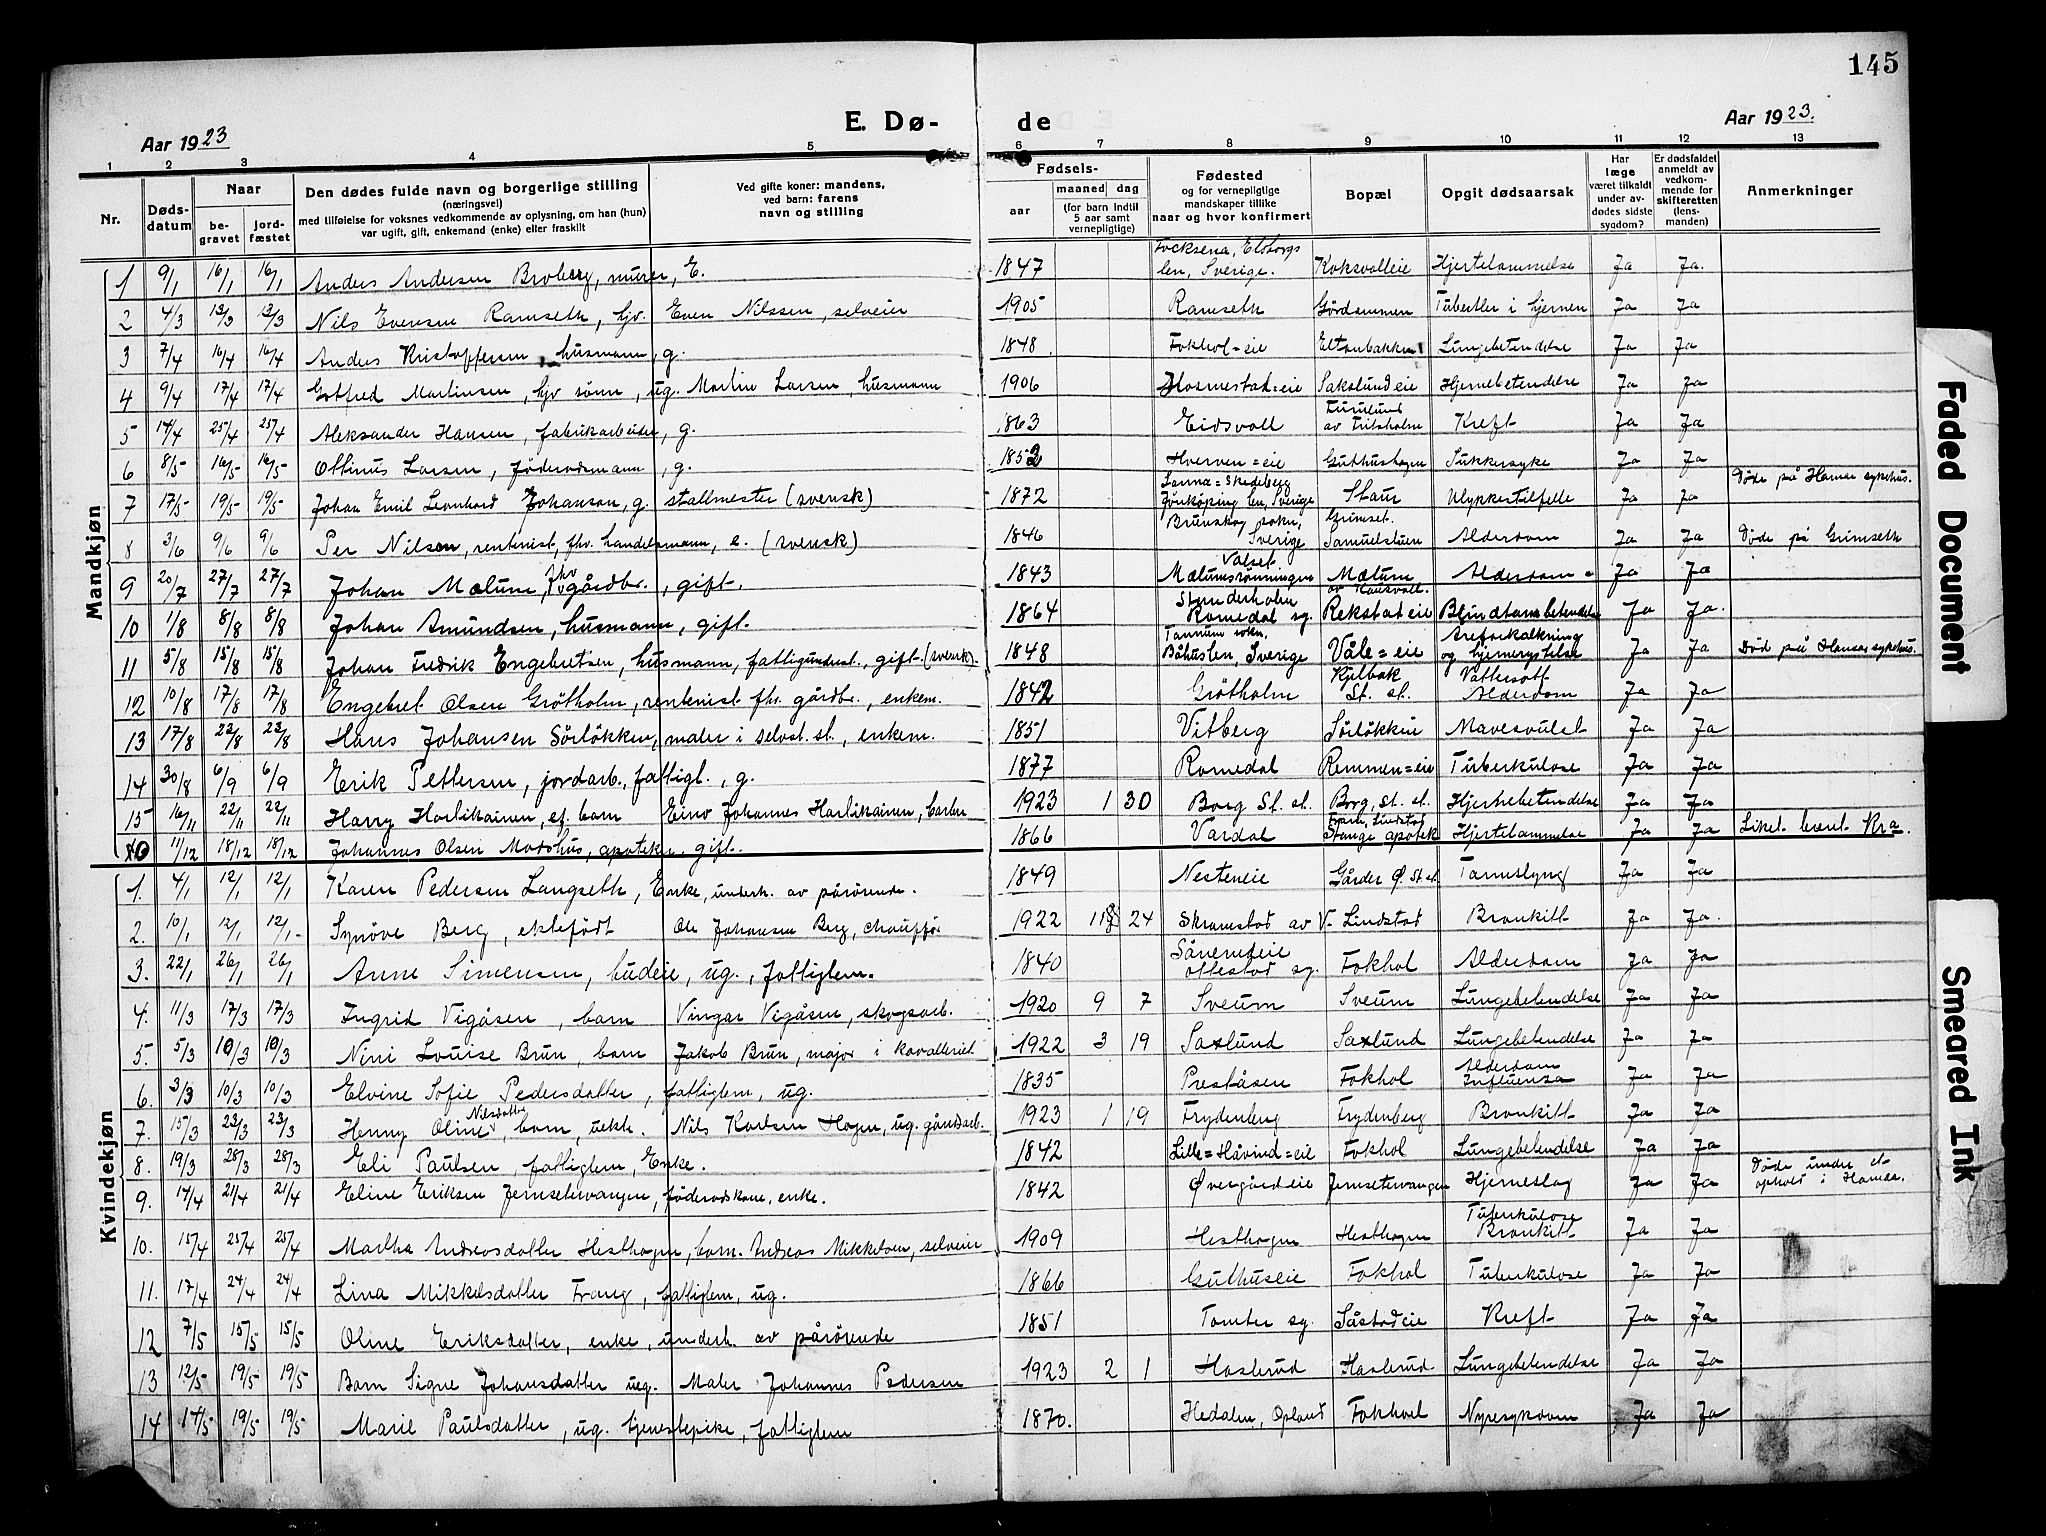 145
E. Dø- de
Aar 1923
Aar 1923.
1 2 3 4 5 6 7 8 9 10 11 12 13
Nr.
Døds-datum
Naar
be-gravet
jord-fæstet
Den dødes fulde navn og borgerlige stilling
(næringsvei)
med tilføielse for voksnes vedkommende av oplysning, om han (hun)
var ugift, gift, enkemand (enke) eller fraskilt
Ved gifte koner: mandens,
ved barn: farens
navn og stilling
Fødsels-
aar
maaned dag
(for barn indtil
5 aar samt
vernepligtige)
Fødested
og for vernepligtige
mandskaper tillike
naar og hvor konfirmert
Bopæl
Opgit dødsaarsak
Har
læge
været tilkaldt
under av-
dødes sidste
sygdom?
Er dødsfaldet
anmeldt av
vedkom-
mende for
skifteretten
(lens-
manden)
Anmerkninger
Mandkjøn
1 9/1 16/1 16/1 Anders Andersen Broberg, murer, E. 1847 Elsborgs len, Sverige. Koksvolleie Hjertelammelse Ja Ja.
2 4/3 13/3 13/3 Nils Evensen Ramseth, hjv. Even Nilssen, selveier 1905 Ramseth Gördammen Tuberkler i hjernen Ja Ja
3 7/4 16/4 16/4 Anders Kristoffersen husmann, g. 1848. Fokhol=eie Lungebetendelse Ja Ja
4 9/4 17/4 17/4 Gotfred Martinsen, hjv sönn, ug. Martin Larsen, husmann 1906 Hosmestad=eie Sakslundeie Hjernebetendelse Ja Ja
5 14/4 25/4 25/4 Aleksander Hansen, fabrikarbeider, g. 1863 Eidsvoll Furulund av Fritsholm Kreft Ja Ja
6 8/5 16/5 16/5 Ottinus Larsen, föderodsmann, g. 1852 Hverven=eie Guthushagen Sukkersyke Ja Ja
7 17/5 19/5 19/5 Johan Emil Leonhard Johanson, g. stallmester (svensk) 1872 Jönköping len, Sverige Staur Ulykkestilfelle Ja Ja Döde på Hamar sykehus.
8 3/6 9/6 9/6 Per Nilsen, rentenist, fhv. handelsmann, e. (svensk) 1846 Brunskog sokn, Sverige Grimset. Samuelstuen Alderdom Ja Ja Döde på Grimseth
9 20/7 27/7 27/7 Johan Mælum, fhv gårdbr., gift. 1843 Valset. Mælumsrönningen Mælum Alderdom Ja Ja
10 1/8 8/8 8/8 Johan Amundsen, husmann, gift. 1864 Romedal sg. Rekstadeie Blindtarmbetendelse Ja Ja.
11 5/8 15/8 15/8 Johan Fredrik Engebretsen, husmann, fattigunderst., gift. (svensk). 1848 Tannum sokn. Båhuslen, Sverige Våle=eie Areforkalkning og hjernerystelse Ja Ja Död på Hamar sykehus.
12 10/8 17/8 17/8 Engebret Olsen Grötholm, rentenist fhv. gårdbr., enkem. 1842 Grötholm Kjelbak St. st. Vattersott Alderdom Ja Ja
13 17/8 23/8 23/8 Hans Johansen Sörlökken, maler i selvst. st., enkem. 1851 Vitberg Sörlökken Mavesvulst Ja Ja
14 30/8 6/9 6/9 Erik Pettersen, jordarb., fattigl., g. 1877 Romedal Remmen=eie Tuberkulose Ja Ja
15 16/11 22/11 22/11 Harry Harlikainen, ef. barn Eino Johannes Harlikainen, barber 1923 1 30 Borg St. st. Borg, St. st. Hjernebetendelse Ja Ja
16 11/12 18/12 18/12 Johannes Olsen Modshus, apoteker, gift. 1866 Vardal Stange apotek Hjertelammelse Ja Ja Liket brent. Kra.
Kvindekjøn
1. 4/1 12/1 12/1 Karen Pedersen Langseth, Enke, underh. av pårörende. 1849 Nesteneie Gårder Ö. St. st. Tarmslyng Ja Ja
2. 10/1 12/1 12/1 Synöve Berg, ektefödt Ole Johansen Berg, chaufför 1922 11 24 Skramstad av V. Lindstad Bronkitt Ja Ja.
3. 22/1 26/1 26/1 Anne Simensen, budeie, ug., fattiglem. 1840 Ottestad sg. Fokhol Alderdom Ja Ja
4. 11/3 17/3 17/3 Ingrid Vigåsen, barn Vingar Vigåsen, skogsarb. 1920 9 7 Sveum Sveum Lungebetendelse Ja Ja
5. 5/3 10/3 10/3 Nini Louise Brun, barn Jakob Brun, major i kavalleriet 1922 3 19 Saxlund Saxlund Lungebetendelse Ja Ja
6. 3/3 10/3 10/3 Elvine Sofie Pedersdatter, fattiglem, ug. 1835 Preståsen Fokhol Alderdom Influensa Ja Ja
7. 15/3 23/3 23/3 Henny Oline Nilsdatter, barn, uekte. Nils Karlsen Hagen, ug. gårdsarb. 1923 1 19 Frydenberg Frydenberg Bronkitt Ja Ja
8. 19/3 28/3 28/3 Eli Paulsen, fattiglem, Enke. 1842 Lille=Håvind=eie Fokhol Lungebetendelse Ja Ja
9. 14/4 21/4 21/4 Eline Eriksen Jemsetervangen, föderodskone, enke. 1842 Övergårdeie Jemsetervangen Hjerneslag Ja Ja Döde under et ophold i Hamar.
10. 15/4 25/4 25/4 Martha Andreasdatter Hesthagen, barn. Andreas Mikkelsen, selveier 1909 Hesthagen Hesthagen Tuberkulose Bronkitt Ja Ja
11. 17/4 24/4 24/4 Lina Mikkelsdatter Frang, fattiglem, ug. 1866 Guthuseie Fokhol Tuberkulose Ja Ja
12 7/5 15/5 15/5 Oline Eriksdatter, enke, underh. av pårörende 1851 Tomter sg. Såstadeie Kreft Ja Ja
13 12/5 19/5 19/5 Barn Signe Johansdatter ueg. Maler Johannes Pedersen 1923 2 1 Haslerud Haslerud Lungebetendelse Ja Ja
14 14/5 19/5 19/5 Marie Paulsdatter, ug. tjenestepike, fattiglem 1870. Hedalen, Opland Fokhol Nyresykdom Ja Ja
Faded Document
Smeared Ink